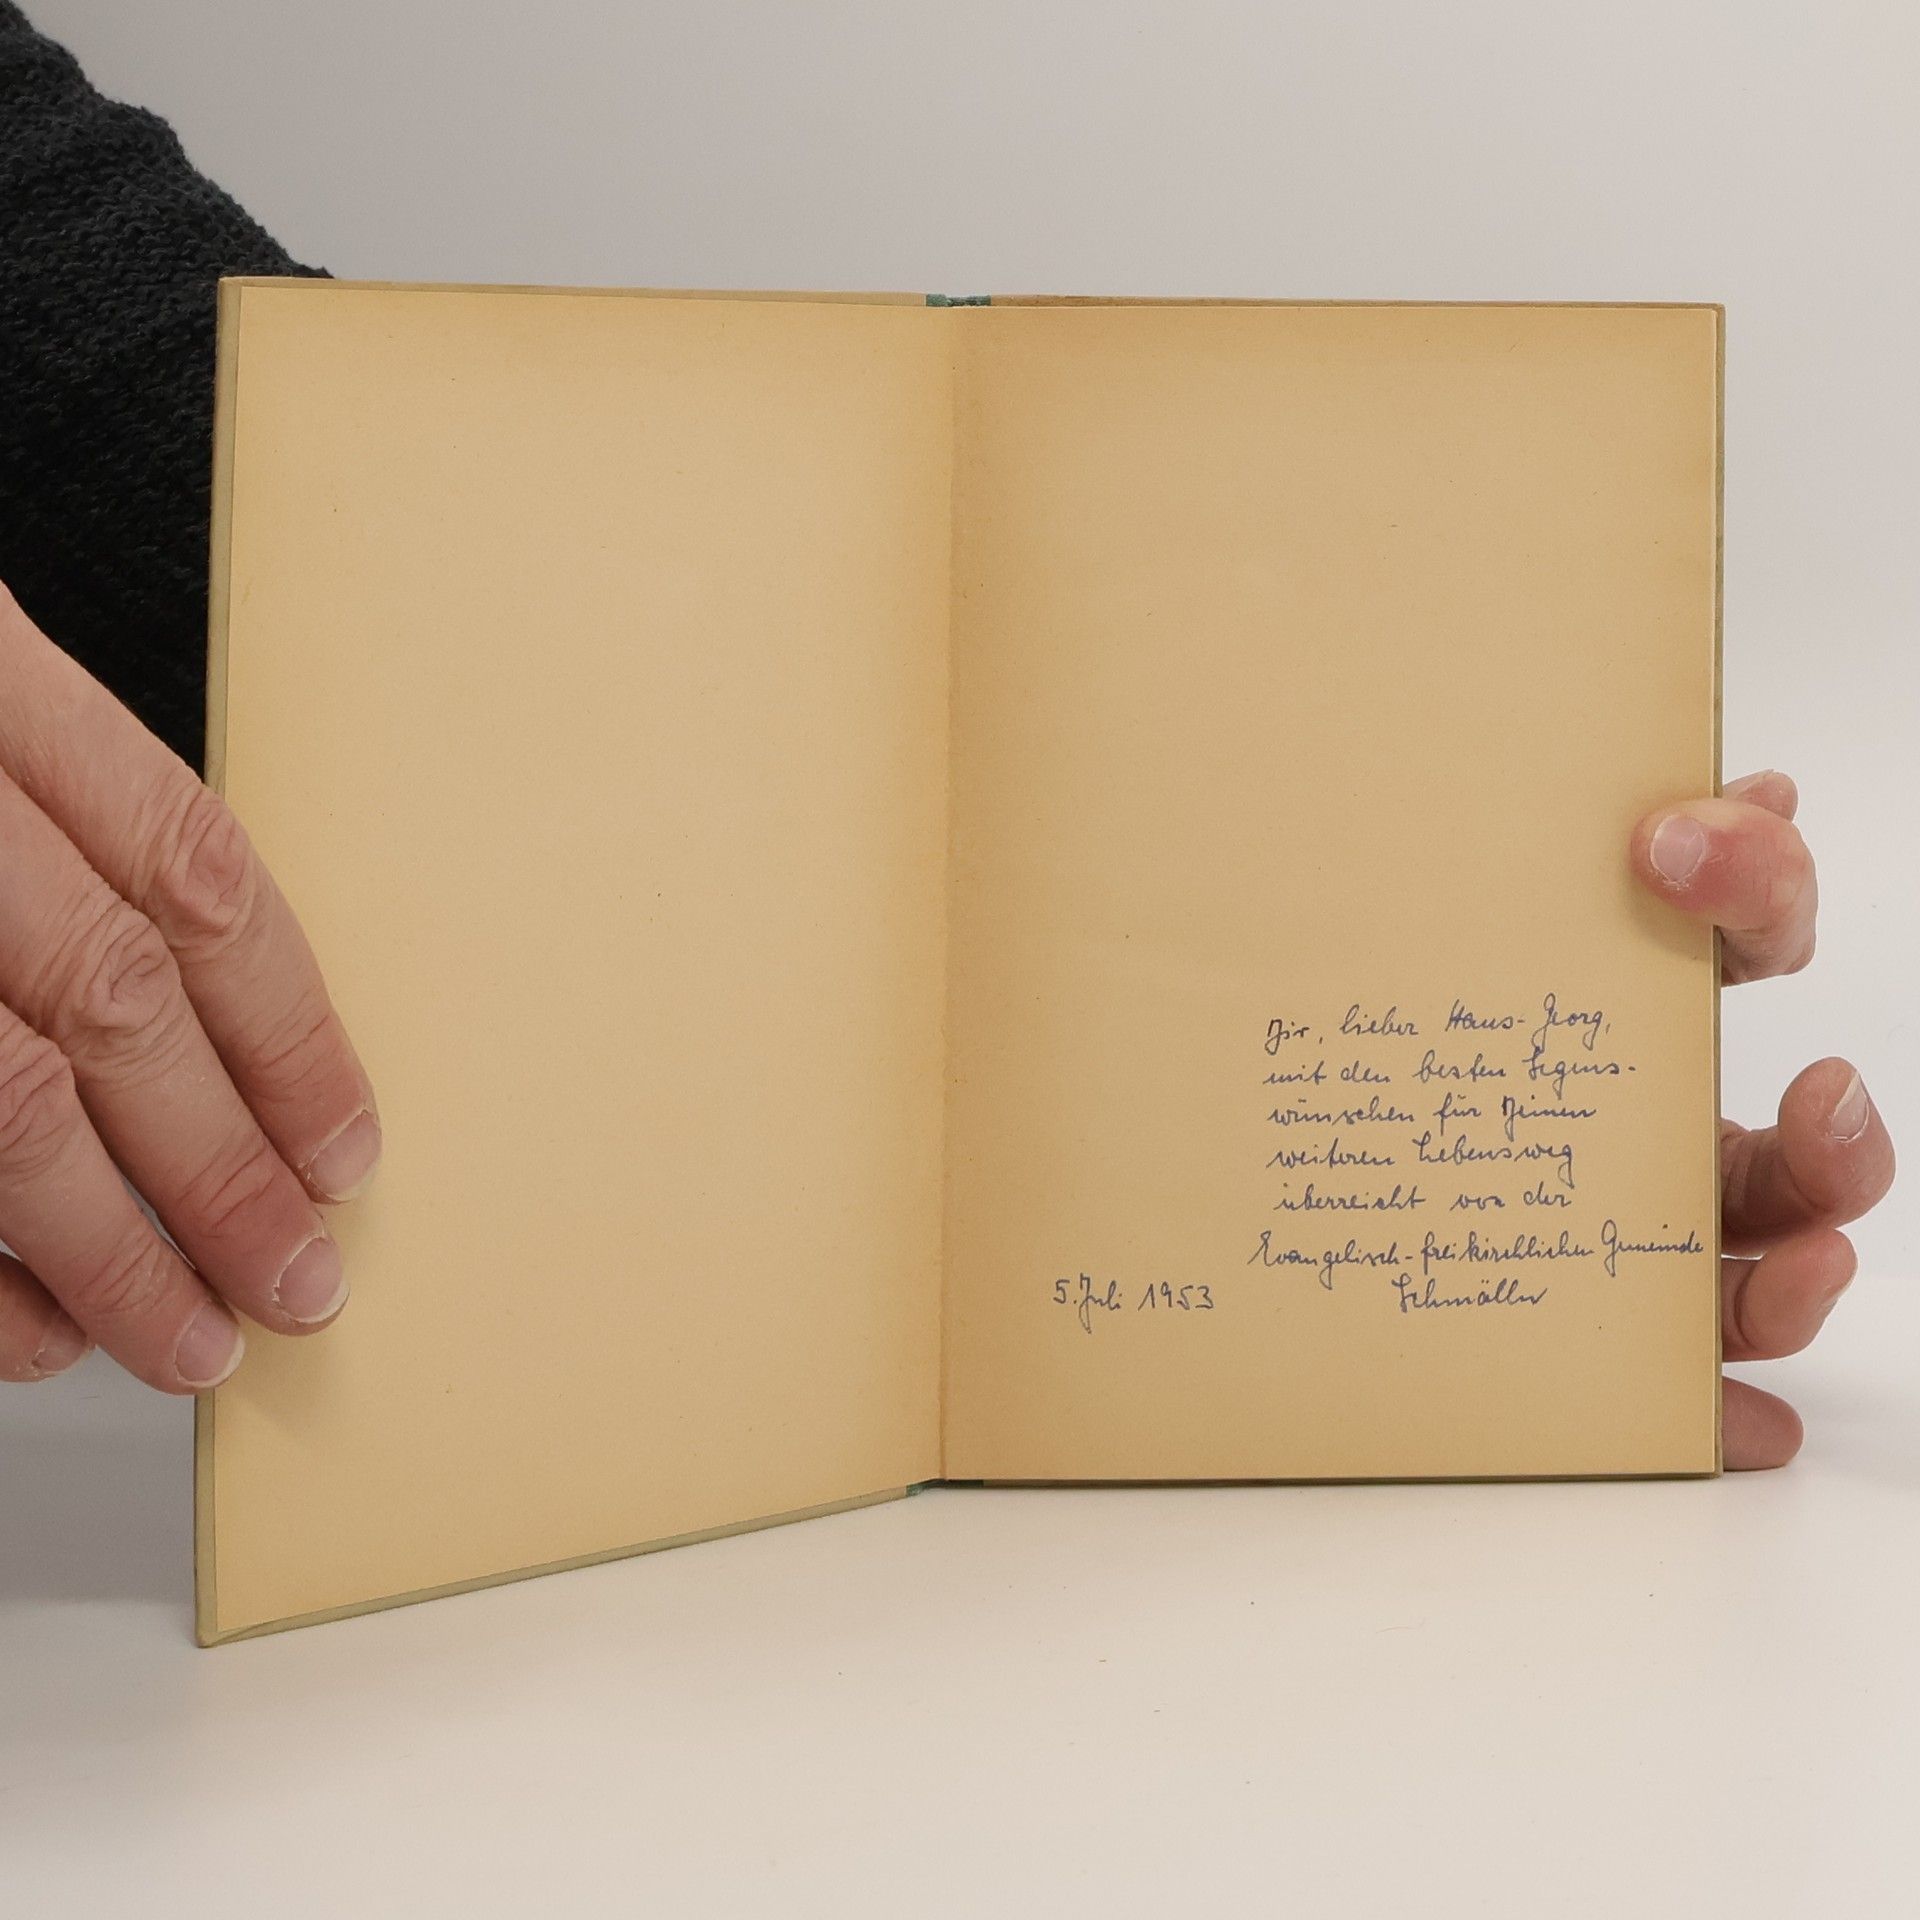 Dir, lieber Hans-Georg,
mit den besten Segens-
wünschen für Deinen
weiteren Lebensweg
überreicht von der
Evangelisch-freikirchlichen Gemeinde
5. Juli 1953 Schmölln